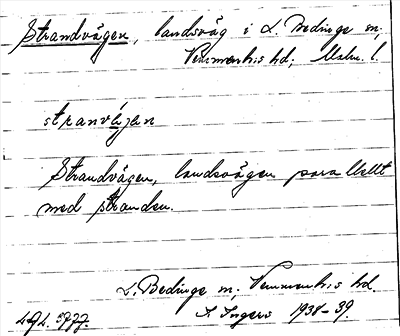 Strandvägen, landsväg i L. Bedinge sn,
Vemmenhis hd, Malm. l.
stranvä́jen
Strandvägen, landsvägen parallellt
med stranden.
L. Bedinge sn, Vemmenhis hd.
Ingers 1938-39